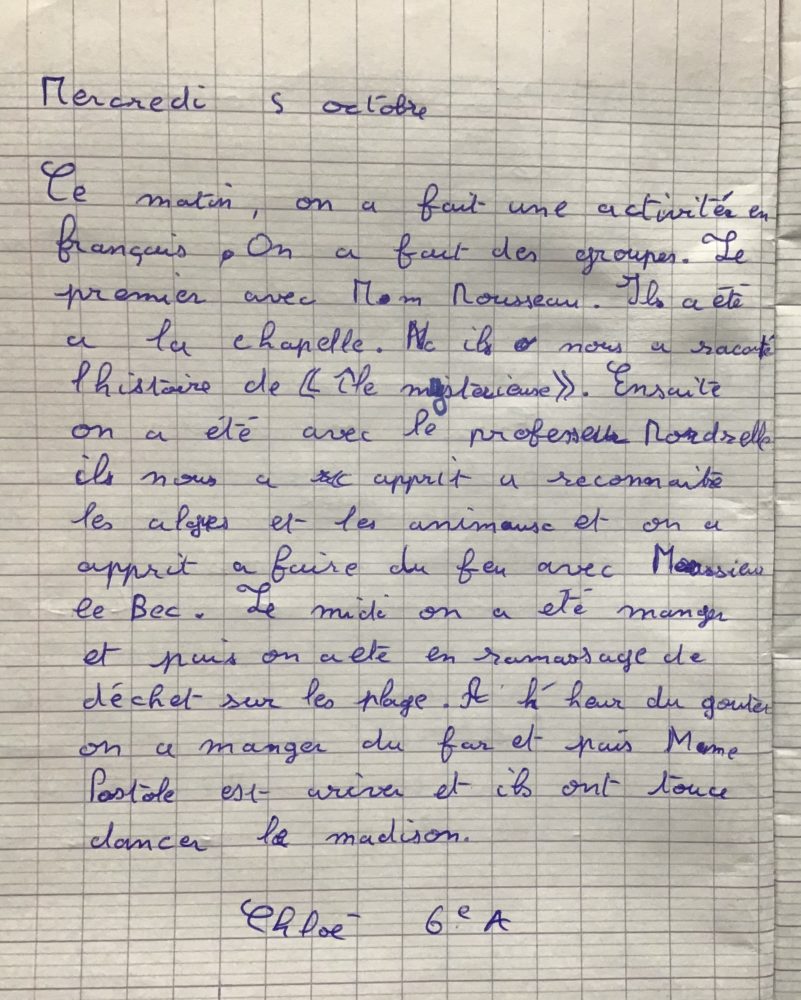 Mercredi 5 octobre
Ce matin, on a fait une activitée en
français. On a fait des groupes. Le
premier avec Mom Rousseau. Ils a été
a la chapelle. ils nous a raconté
l'histoire de « île mystérieuse ». Ensuite
on a été avec le professeur Mordrelle
ils nous a apprit a reconnaitre
les algues et les animause et on a
apprit a faire du feu avec Monssieu
le Bec. Le midi on a été manger
et puis on a eté en ramassage de
déchet sur les plage. A heur du gouter
on a manger du far et puis Mame
Postole est ariver et ils ont touce
dancer le madison.
Chloé 6e A